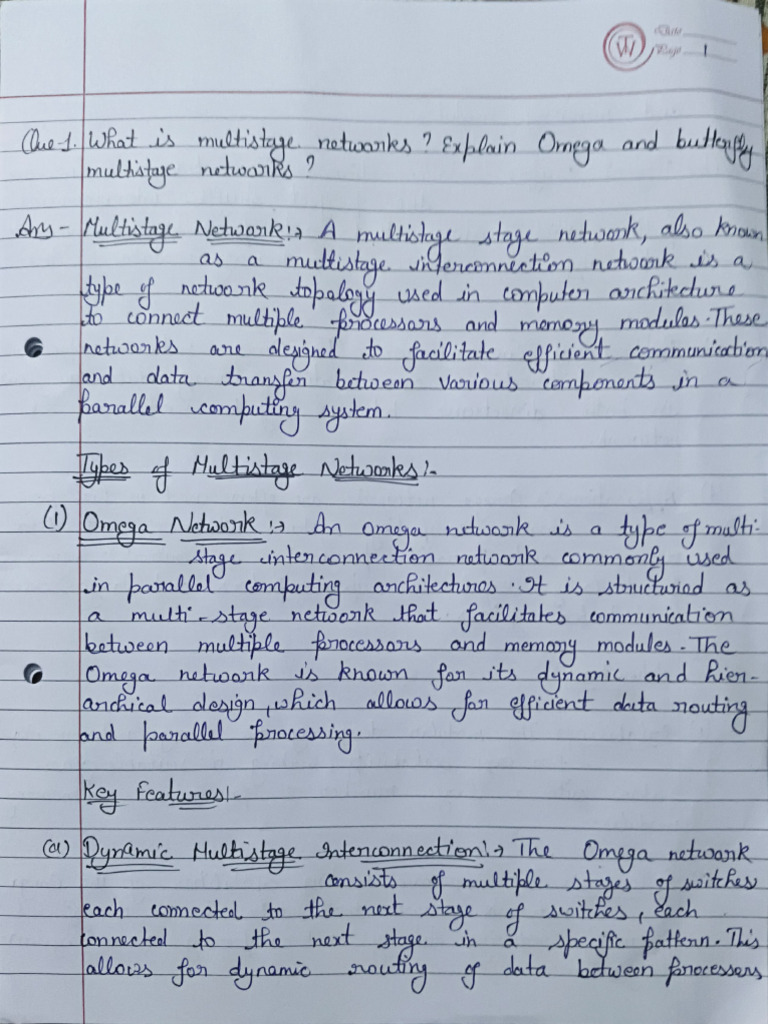 Date
Page 1
Que-1. What is multistage networks? Explain Omega and butterfly
multistage networks?
Ans - Multistage Network:→ A multistage stage network, also known
as a multistage interconnection network is a
type of network topology used in computer architecture
to connect multiple processors and memory modules. These
networks are designed to facilitate efficient communication
and data transfer between various components in a
parallel computing system.
Types of Multistage Networks:-
(i) Omega Network:→ An omega network is a type of multi-
stage interconnection network commonly used
in parallel computing architectures. It is structuriod as
a multi-stage network that facilitates communication
between multiple processors and memory modules. The
Omega network is known for its dynamic and hier-
archical design, which allows for efficient data routing
and parallel processing.
Key Features:-
(a) Dynamic Multistage Interconnection:→ The Omega network
consists of multiple stages of switches
each connected to the next stage of switches, each
connected to the next stage in a specific pattern. This
allows for dynamic routing of data between processers